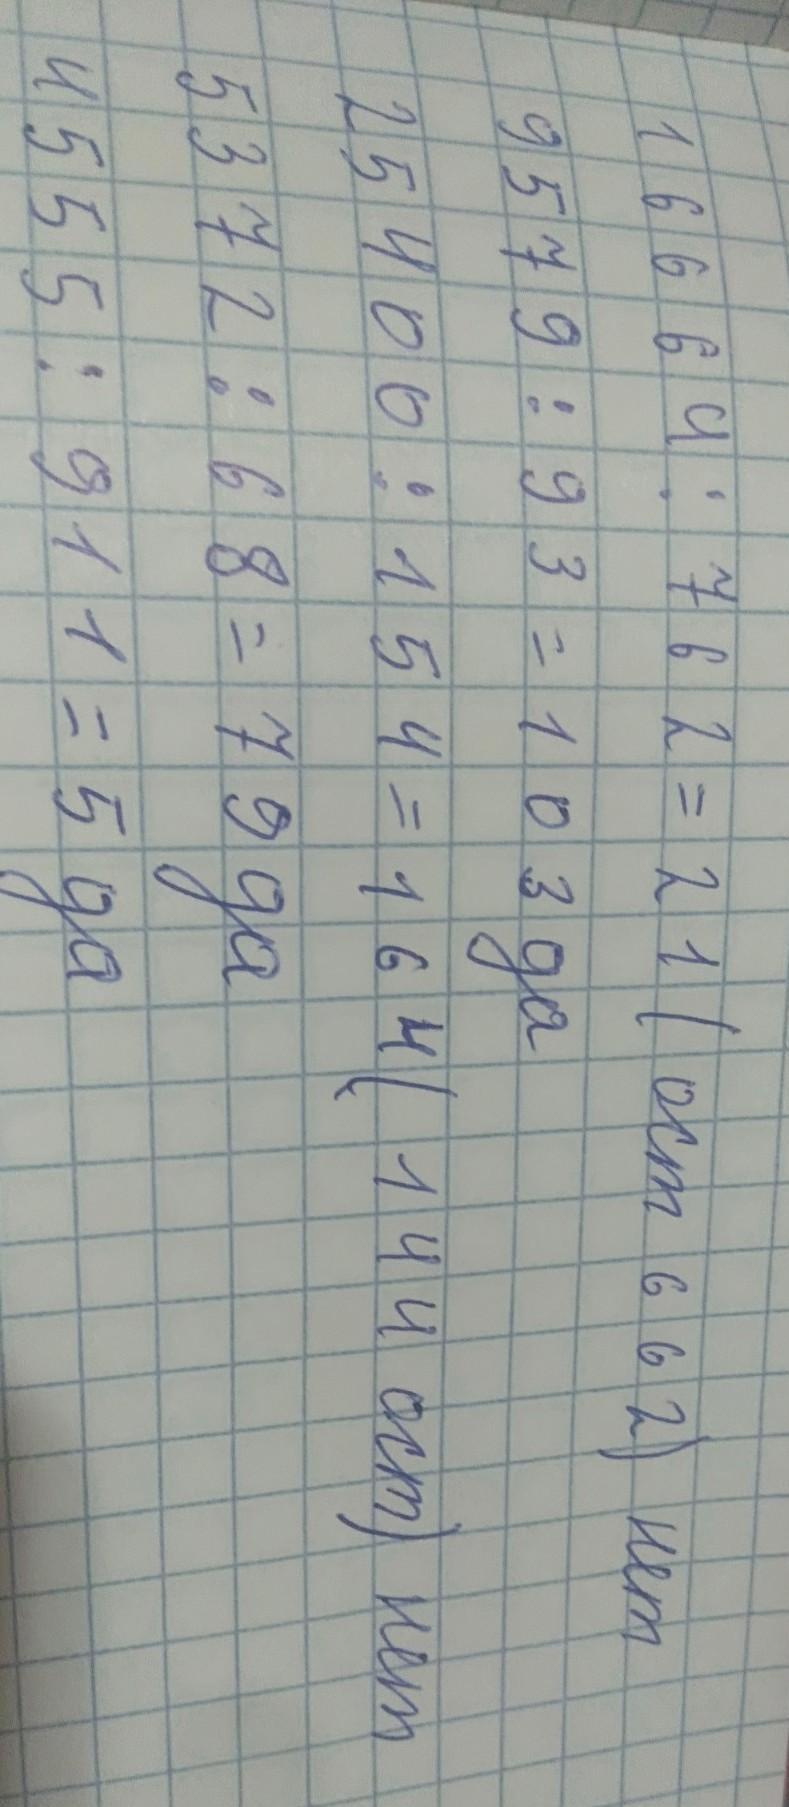 16664 : 762 = 21 ( ост 662) нет
9579 : 93 = 103 да
25400 : 154 = 164 ( 144 ост) нет
5372 : 68 = 79 да
4555 : 911 = 5 да